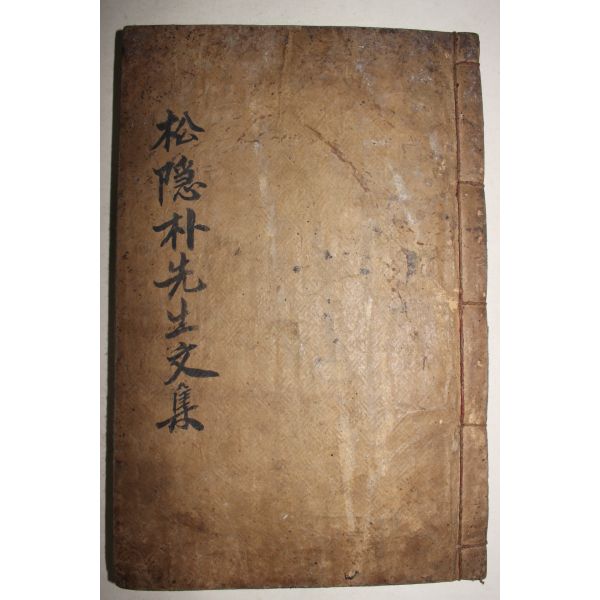 松隐朴先生文集